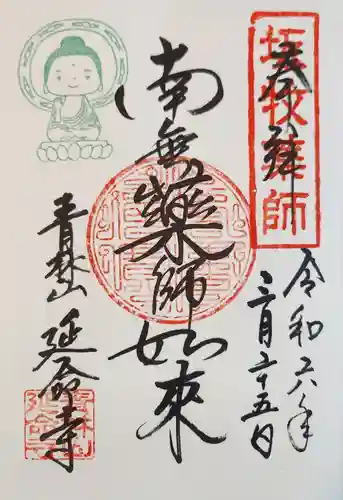 奉拝
坂牧薬師
令和六年
三月二十五日
南無薬師如來
青林山 延命寺